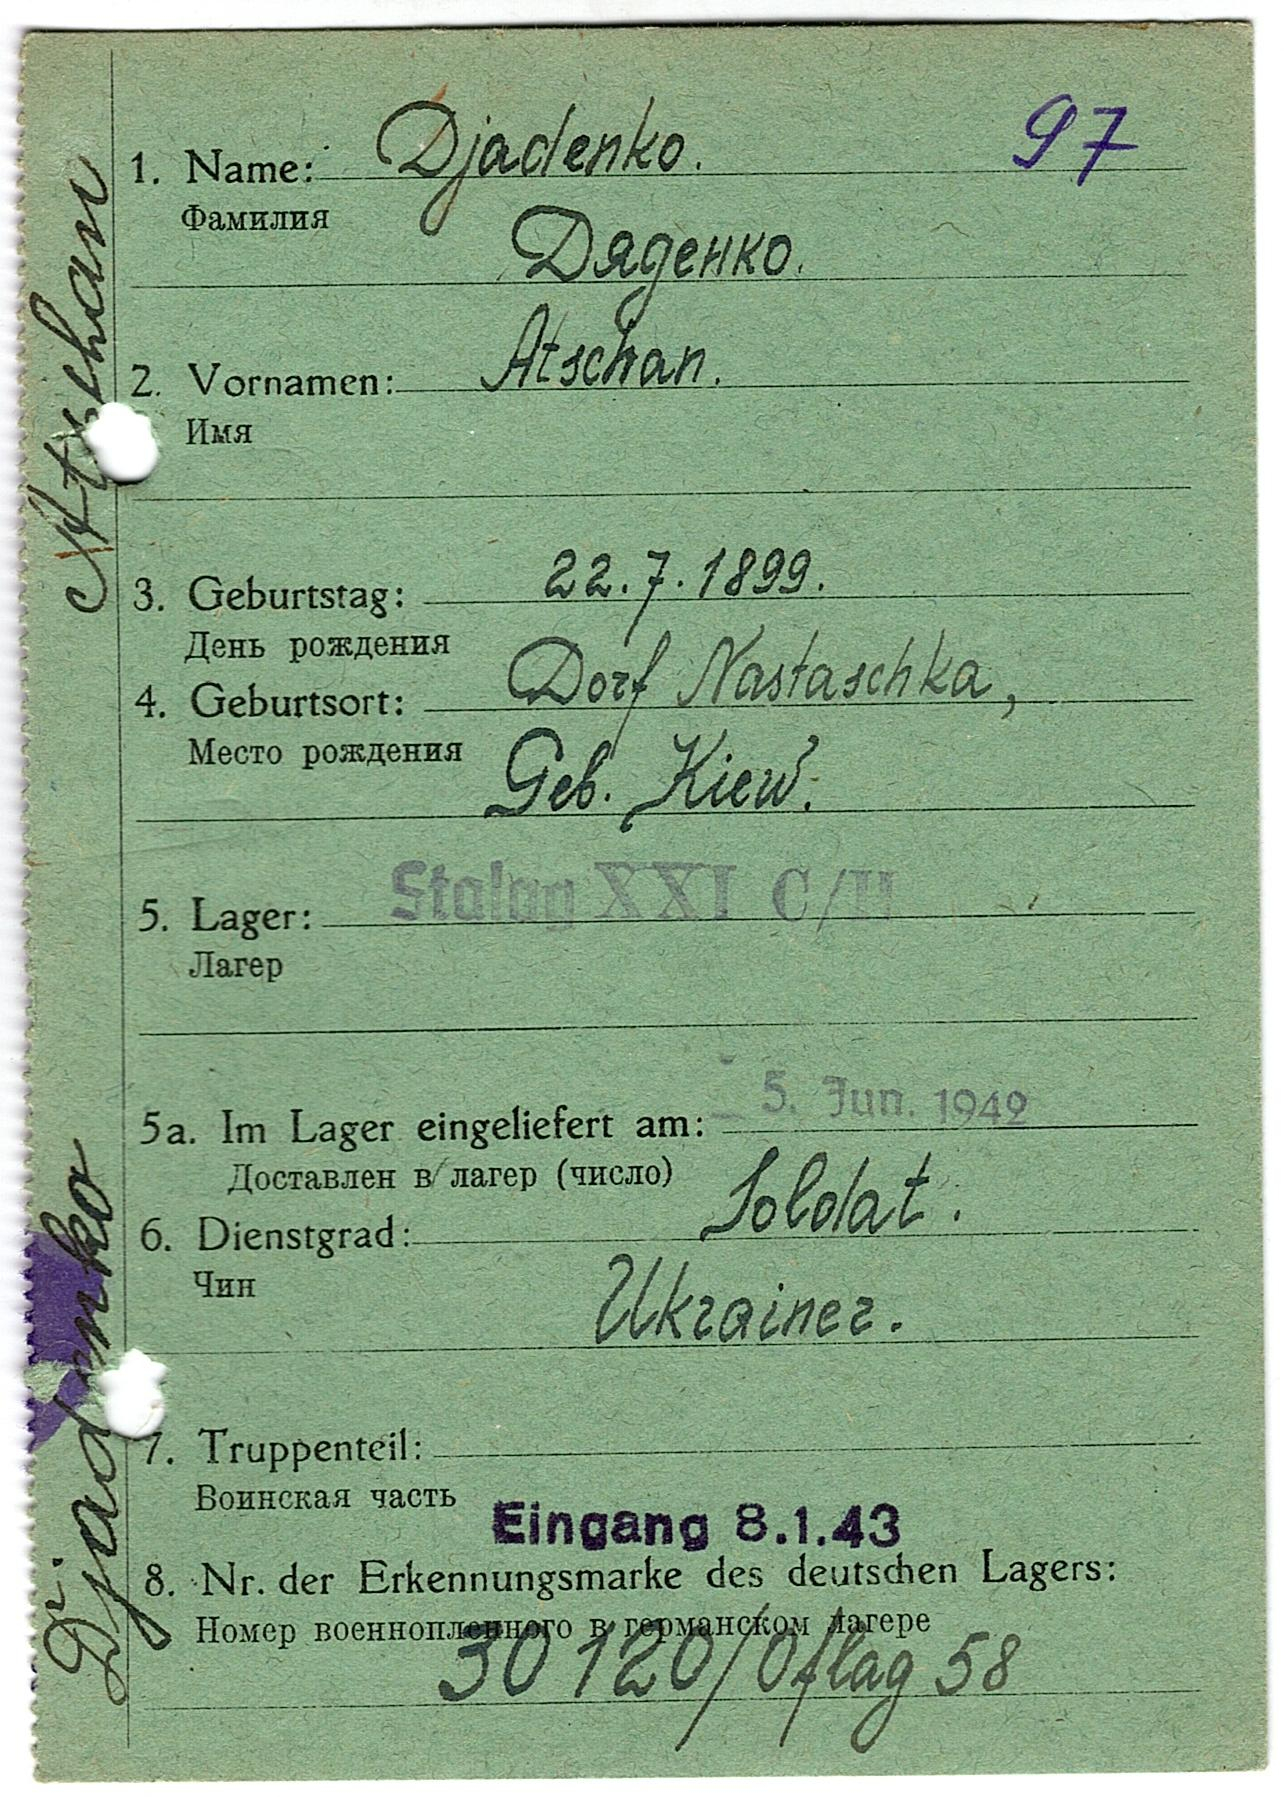 97
1. Name: Djadenko.
Фамилия
Дяденко.
2. Vornamen: Atschan.
Имя
3. Geburtstag: 22.7.1899.
День рождения
4. Geburtsort: Dorf Nastaschka,
Место рождения
Geb. Kiew.
5. Lager: Stalag XXI C/H
Лагер
5a. Im Lager eingeliefert am: - 5. Jun. 1942
Доставлен в лагер (число)
6. Dienstgrad: Soldat.
Чин
Ukrainer.
7. Truppenteil:
Воинская часть
Eingang 8.1.43
8. Nr. der Erkennungsmarke des deutschen Lagers:
Номер военнопленного в германском лагере
30120/Oflag 58
Djadenko Atschan